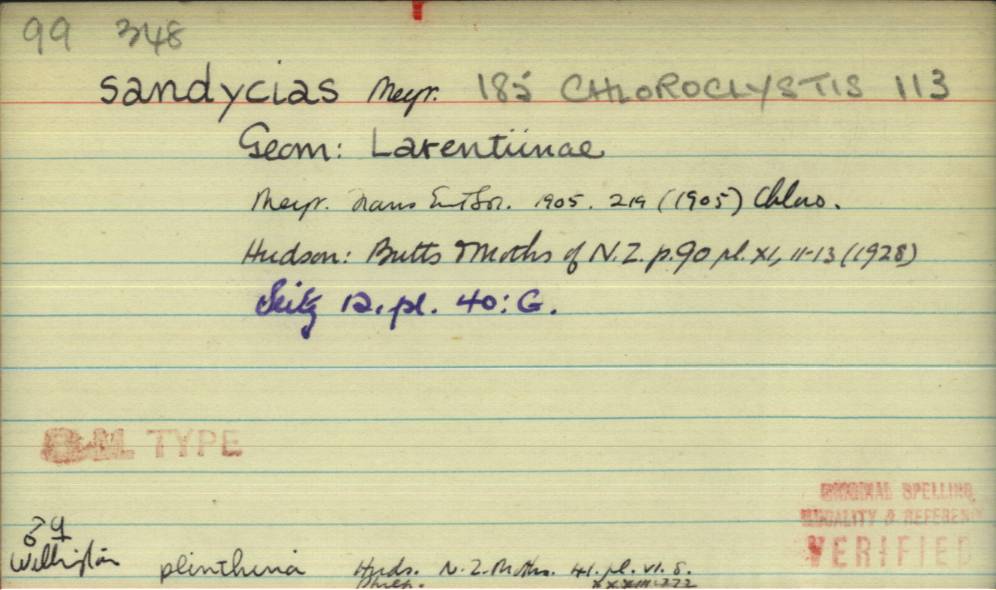 99 348
sandycias Meyr. 185 CHLOROCLYSTIS 113
Geom: Larentiinae
Meyr. Trans Ent Soc. 1905. 219 (1905) Chloro.
Hudson: Butts & Moths of N.Z. p.90 pl. XI, 11-13 (1928)
Seitz 12. pl. 40: G.
B.M. TYPE
ORIGINAL SPELLING,
LOCALITY & REFERENCE
VERIFIED
♂ ♀
Wellington plinthina Huds. N.Z. Moths. 41. pl. vi. 8.
XXXIII. 272